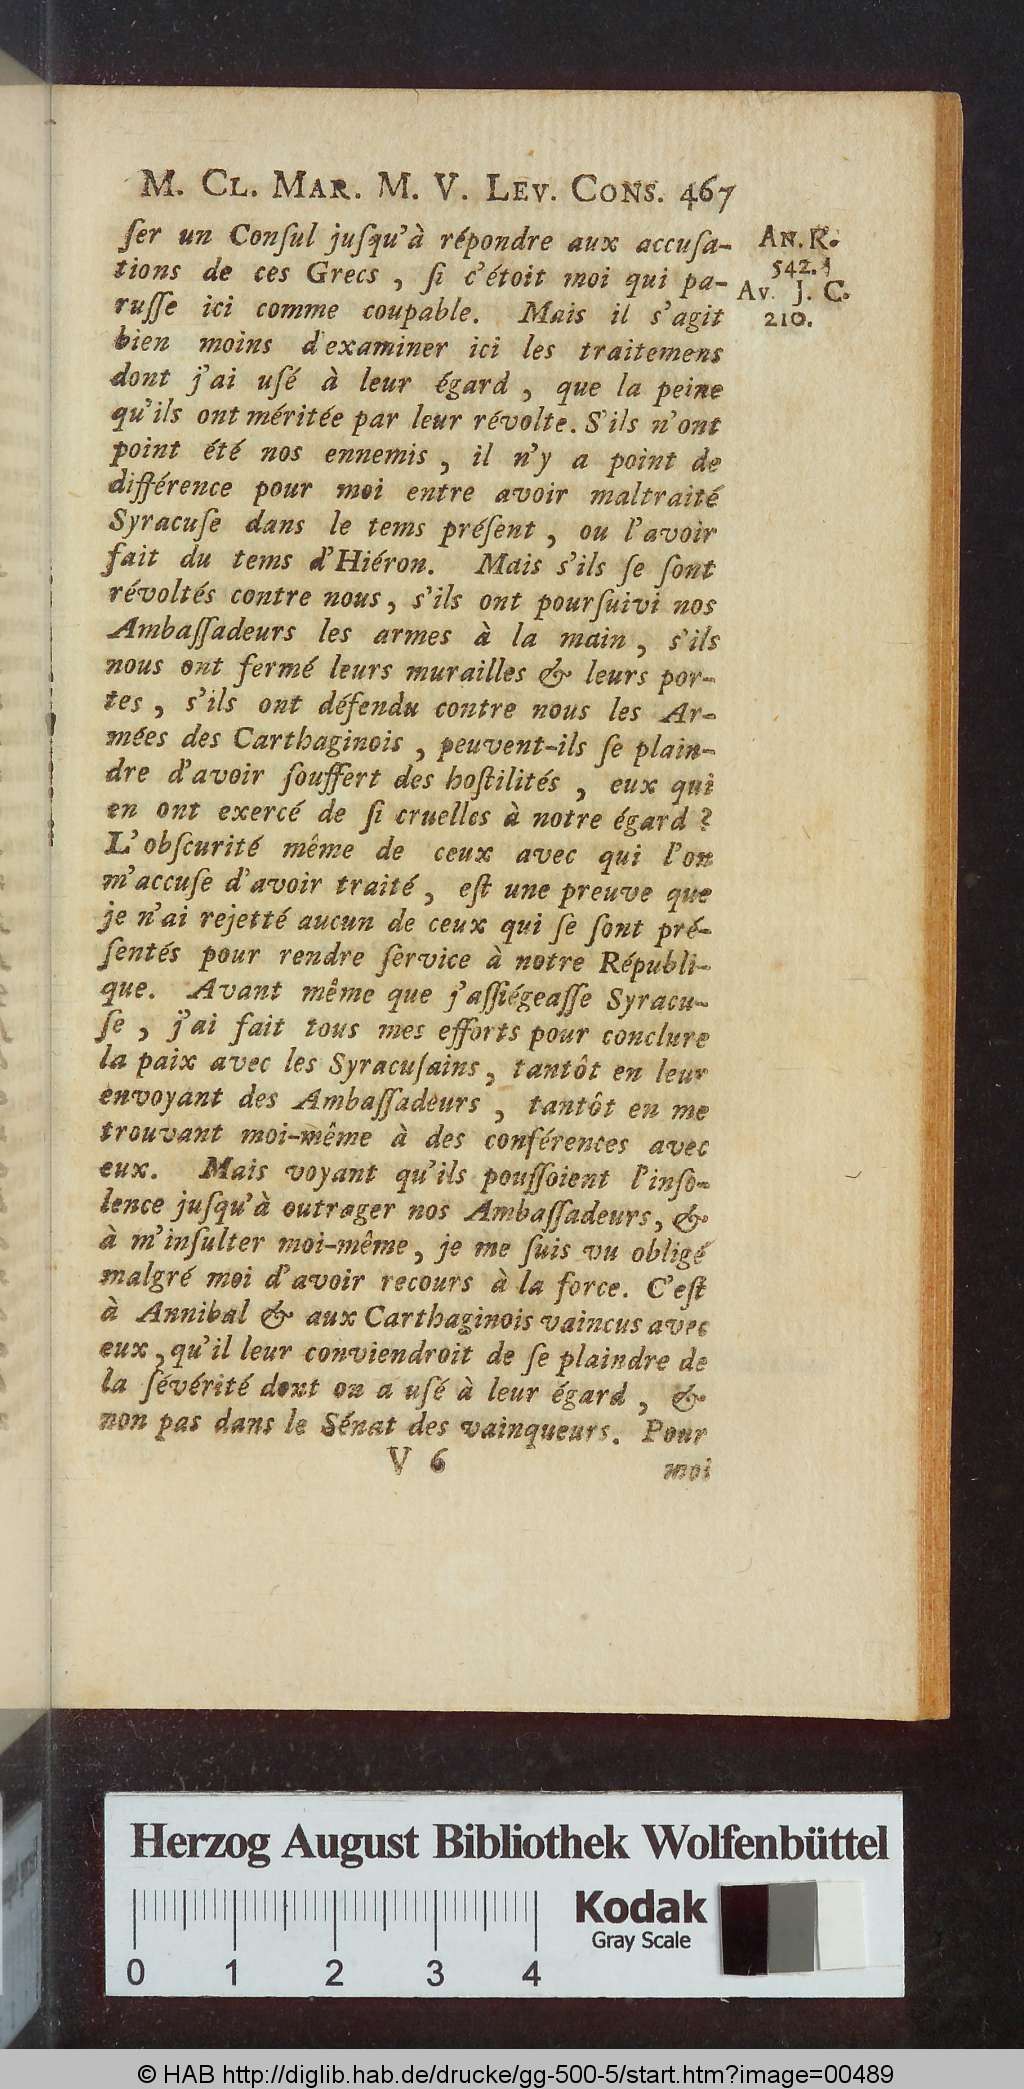 M. CL. MAR. M. V. LEV. CONS. 467
ſer un Conſul juſqu'à répondre aux accuſa-
tions de ces Grecs, ſi c'étoit moi qui pa-
ruſſe ici comme coupable. Mais il s'agit
bien moins d'examiner ici les traitemens
dont j'ai uſé à leur égard, que la peine
qu'ils ont méritée par leur révolte. S'ils n'ont
point été nos ennemis, il n'y a point de
différence pour moi entre avoir maltraité
Syracuſe dans le tems préſent, ou l'avoir
fait du tems d'Hiéron. Mais s'ils ſe ſont
révoltés contre nous, s'ils ont pourſuivi nos
Ambaſſadeurs les armes à la main, s'ils
nous ont fermé leurs murailles & leurs por-
tes, s'ils ont défendu contre nous les Ar-
mées des Carthaginois, peuvent-ils ſe plain-
dre d'avoir ſouffert des hoſtilités, eux qui
en ont exercé de ſi cruelles à notre égard?
L'obſcurité même de ceux avec qui l'on
m'accuſe d'avoir traité, eſt une preuve que
je n'ai rejetté aucun de ceux qui ſe ſont pré-
ſentés pour rendre ſervice à notre Républi-
que. Avant même que j'aſſiégeaſſe Syracu-
ſe, j'ai fait tous mes efforts pour conclure
la paix avec les Syracuſains, tantôt en leur
envoyant des Ambaſſadeurs, tantôt en me
trouvant moi-même à des conférences avec
eux. Mais voyant qu'ils pouſſoient l'inſo-
lence juſqu'à outrager nos Ambaſſadeurs, &
à m'inſulter moi-même, je me ſuis vu obligé
malgré moi d'avoir recours à la force. C'eſt
à Annibal & aux Carthaginois vaincus avec
eux, qu'il leur conviendroit de ſe plaindre de
la ſévérité dont on a uſé à leur égard, &
non pas dans le Sénat des vainqueurs. Pour
V 6 moi
AN. R.
542.
Av. J. C.
210.
Herzog August Bibliothek Wolfenbüttel
Kodak
Gray Scale
0 1 2 3 4
© HAB http://diglib.hab.de/drucke/gg-500-5/start.htm?image=00489